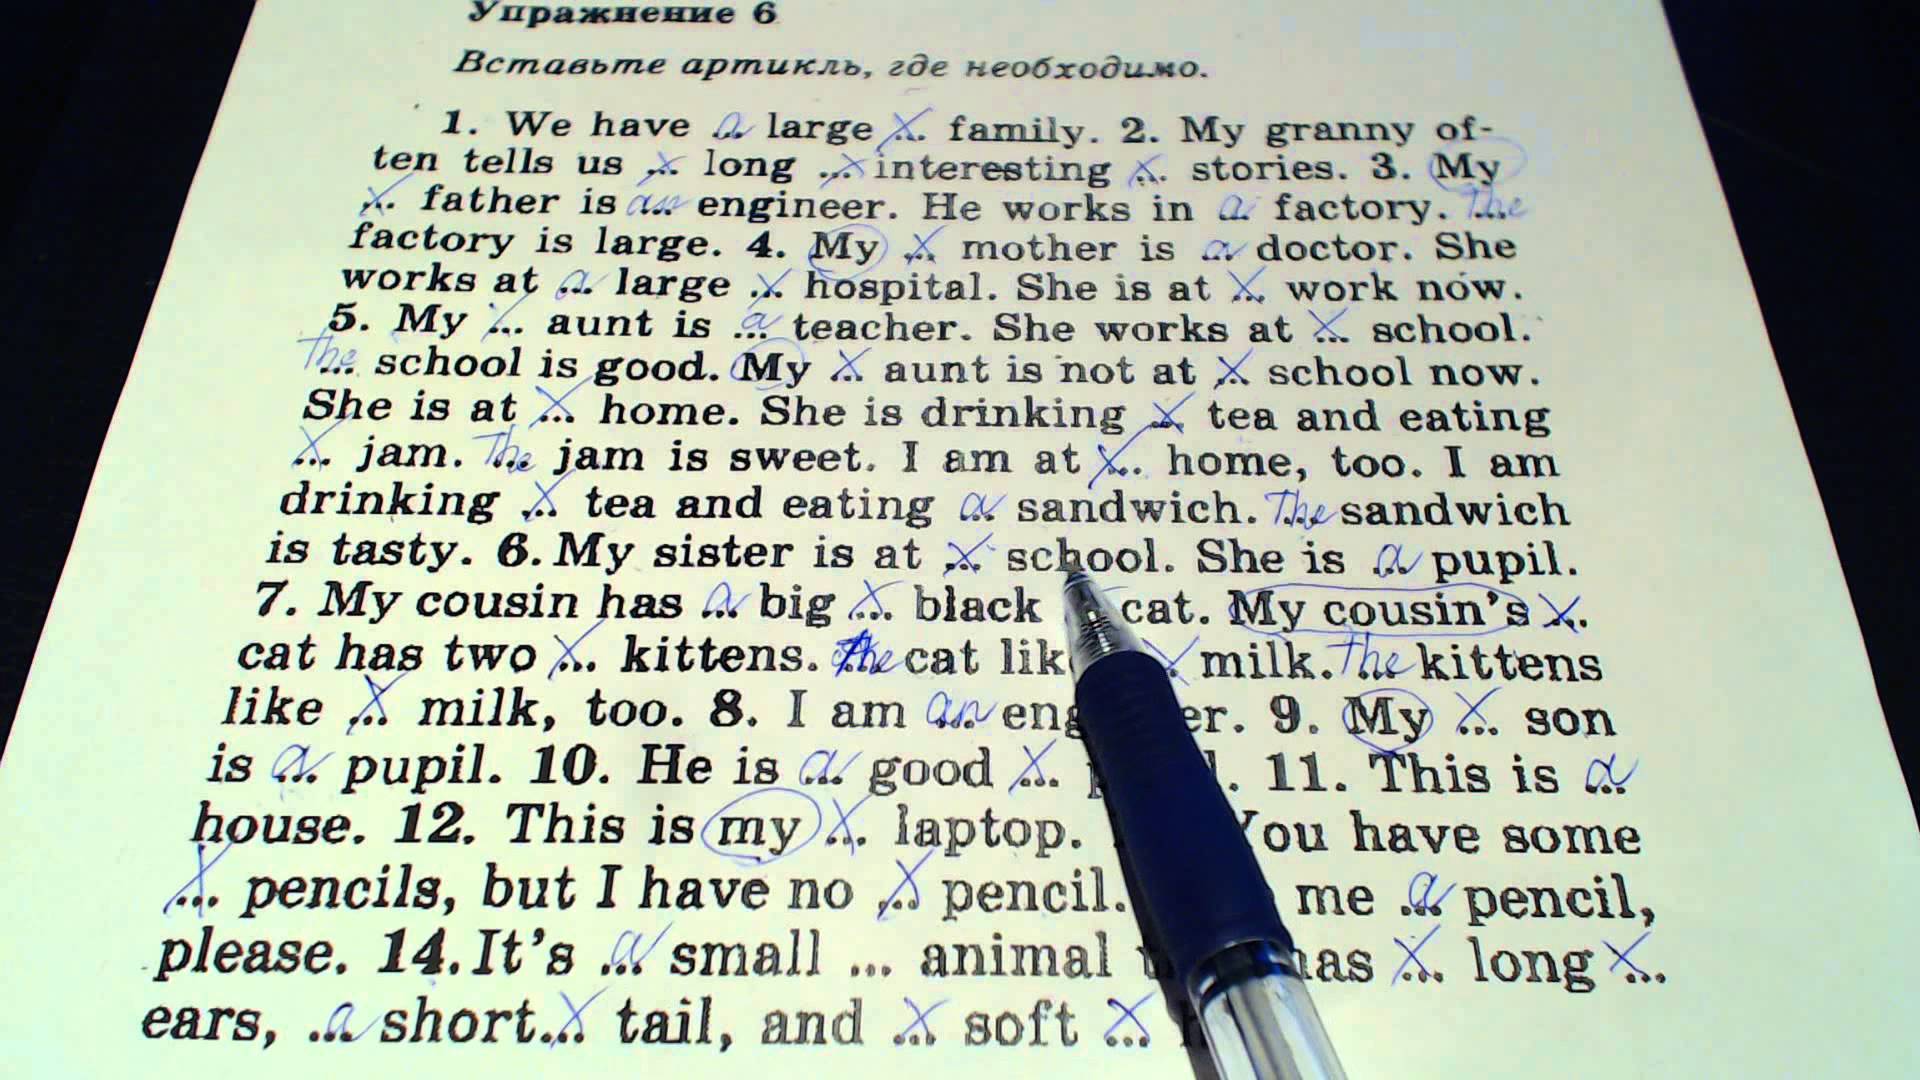 Упражнение 6
Вставьте артикль, где необходимо.
1. We have a ... large X ... family. 2. My granny of-
ten tells us X ... long ... X interesting X ... stories. 3. My
X ... father is an ... engineer. He works in a ... factory. The ...
factory is large. 4. My X ... mother is a ... doctor. She
works at a ... large X ... hospital. She is at X ... work now.
5. My X ... aunt is a ... teacher. She works at X ... school.
The ... school is good. My X ... aunt is not at X ... school now.
She is at X ... home. She is drinking X ... tea and eating
X ... jam. The ... jam is sweet. I am at X ... home, too. I am
drinking X ... tea and eating a ... sandwich. The ... sandwich
is tasty. 6. My sister is at X ... school. She is a ... pupil.
7. My cousin has a ... big X ... black cat. My cousin's X ...
cat has two X ... kittens. The ... cat X milk. The ... kittens
like X ... milk, too. 8. I am an ... 9. My X ... son
is a ... pupil. 10. He is a ... good X ... 11. This is a ...
house. 12. This is my X ... laptop. You have some
X ... pencils, but I have no X ... pencil. me a ... pencil,
please. 14. It's a ... small ... animal has X ... long X ...
ears, a ... short X ... tail, and X ... soft X ...